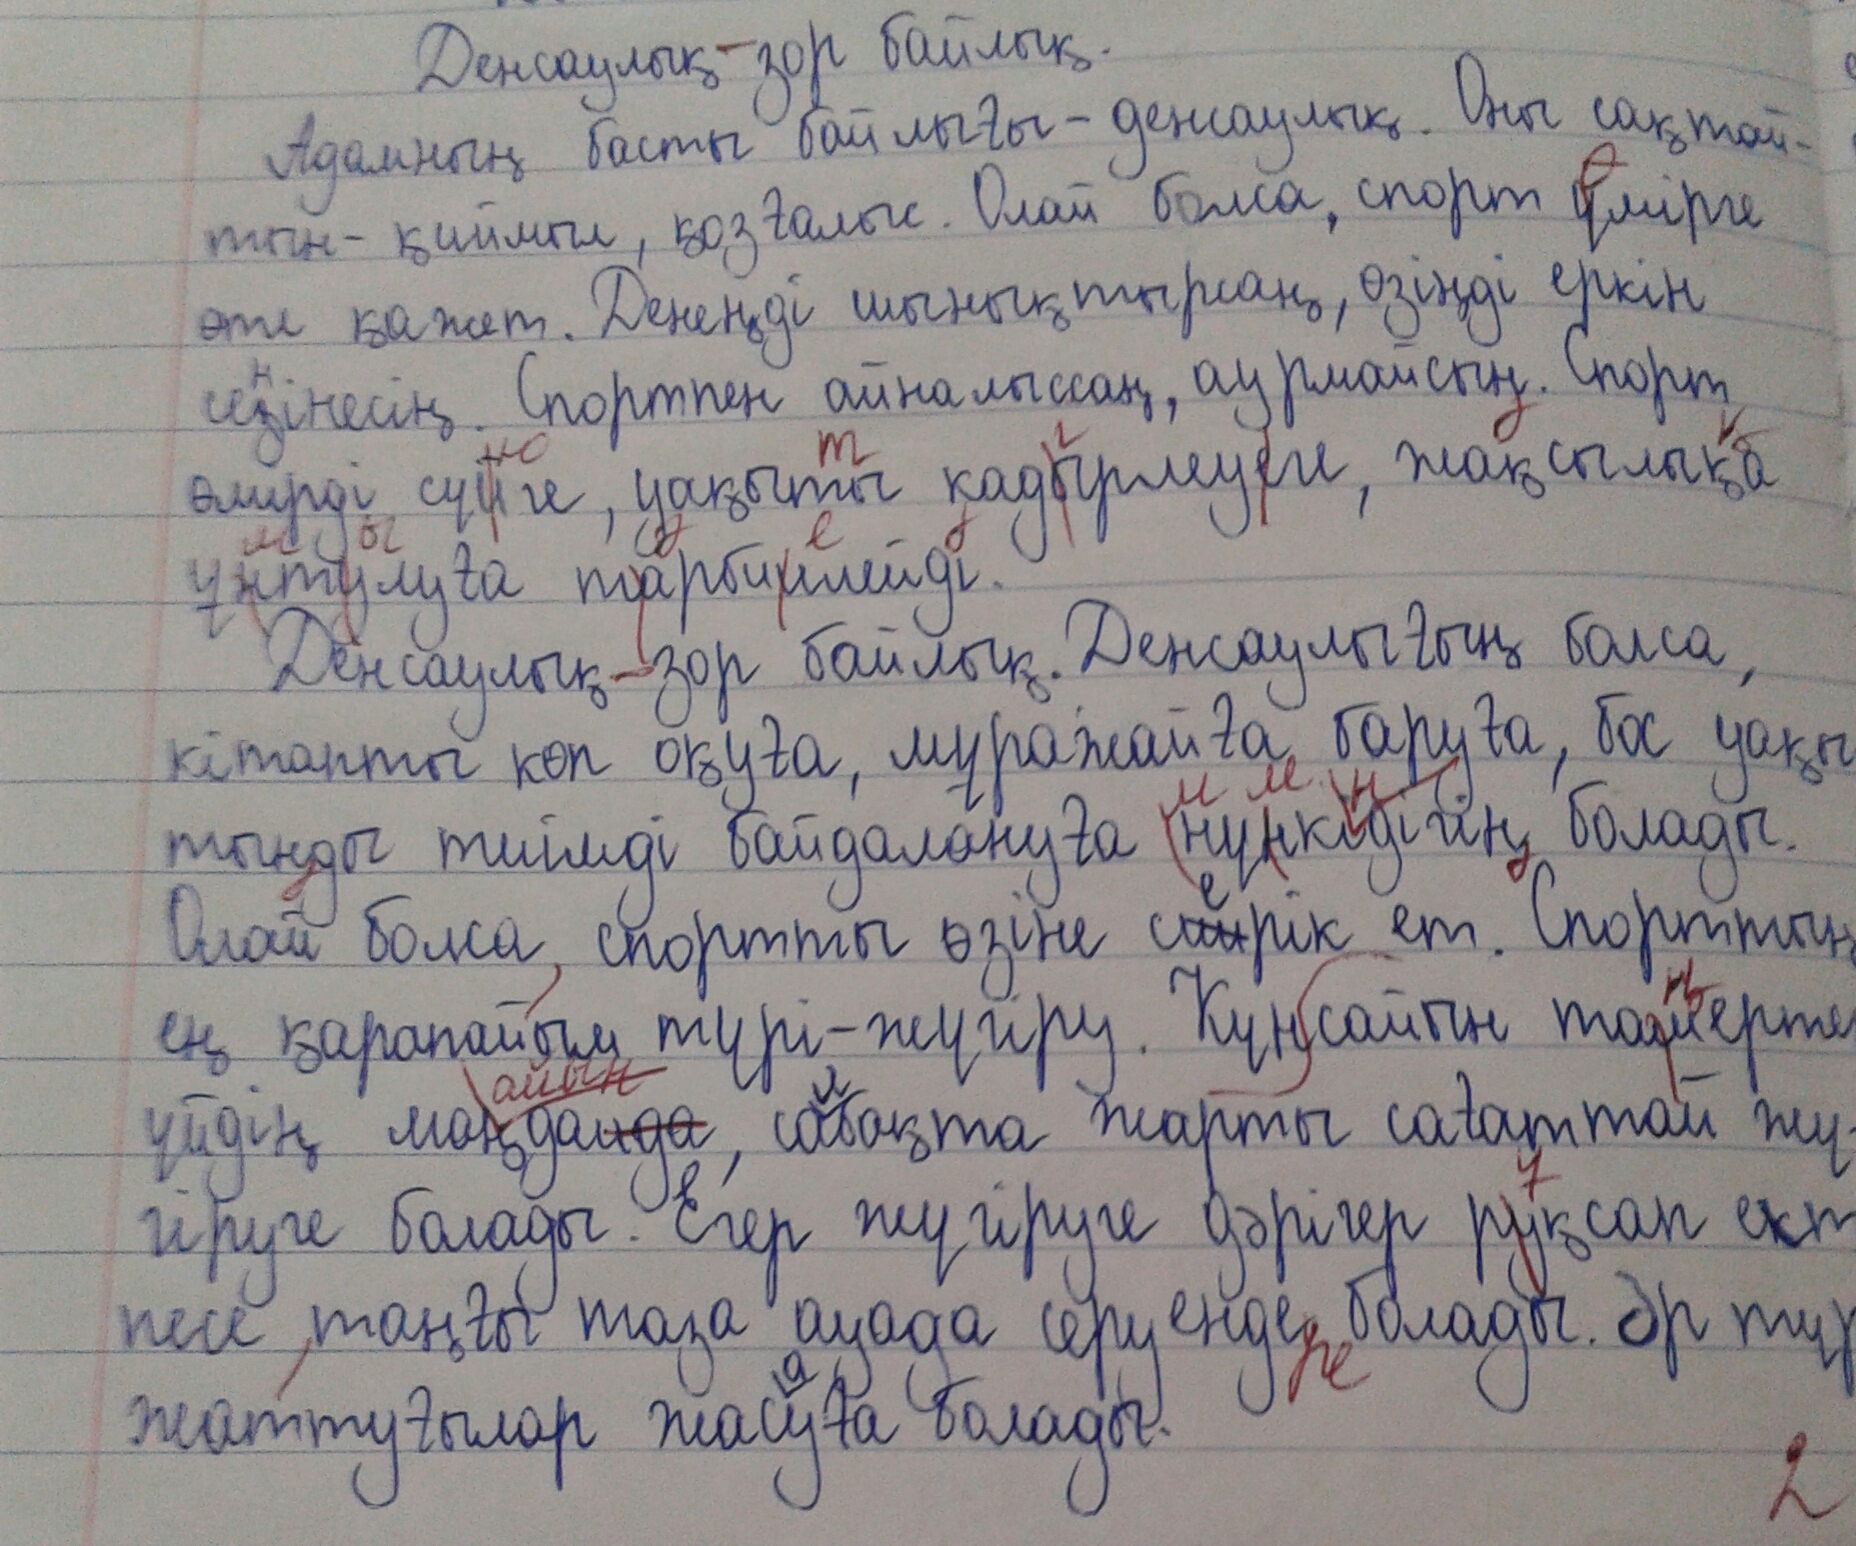 Денсаулық-зор байлық.
Адамның басты байлығы-денсаулық. Оны сақтай-
тын-қиймыл, қозғалыс. Олай болса, спорт өмірге
өте қажет. Дененді шынықтырсаң, өзіңді еркін
сезінесің. Спортпен айналыссаң, аурмайсың. Спорт
өмірді сүйге, уақытты қадырлеуге, жақсылықа
ұнтулуға тарбиялейді.
Денсаулық-зор байлық. Денсаулығың болса,
кітапты көп оқуға, мұражайға баруға, бос уақы
тыңды тиімді байдалануға болады.
Олай болса, спортты өзіне серік ет. Спорттың
ең қарапайым түрі-жүгіру. Күнсайын таңерте
үйдің сабақта жарты сағаттай жү-
гіруге болады. Егер жүгіруге дәрігер руқсап ет
песе, таңғы таза ауада серуенде болады. Әр түр
жаттуғылар жасауға болады.
2